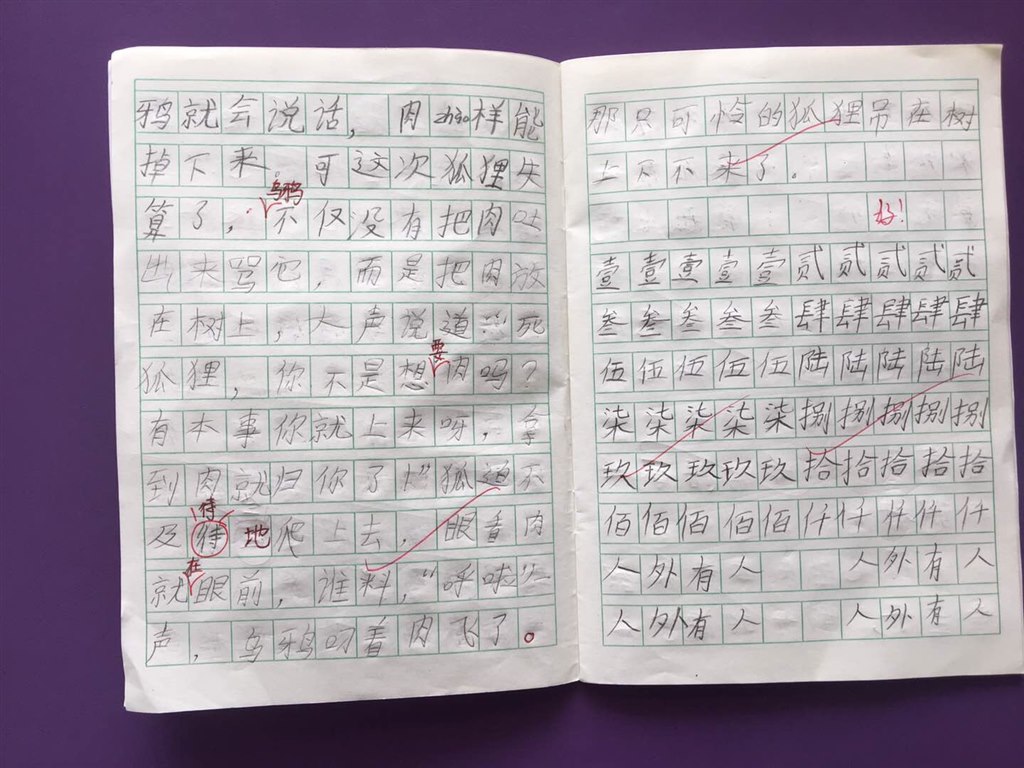 鸦就会说话，肉zhao样能
掉下来。可这次狐狸失
算了，乌鸦不仅没有把肉吐
出来骂它，而是把肉放
在树上，大声说道：“死
狐狸，你不是想要肉吗？
有本事你就上来呀，拿
到肉就归你了！”狐迫不
及待地爬上去，眼看肉
就在眼前，谁料，“呼啦”一
声，乌鸦叼着肉飞了。
那只可怜的狐狸吊在树
上下不来了。
好！
壹壹壹壹壹贰贰贰贰贰
叁叁叁叁叁肆肆肆肆肆
伍伍伍伍伍陆陆陆陆陆
柒柒柒柒柒捌捌捌捌捌
玖玖玖玖玖拾拾拾拾拾
佰佰佰佰佰仟仟仟仟仟
人外有人 人外有人
人外有人 人外有人